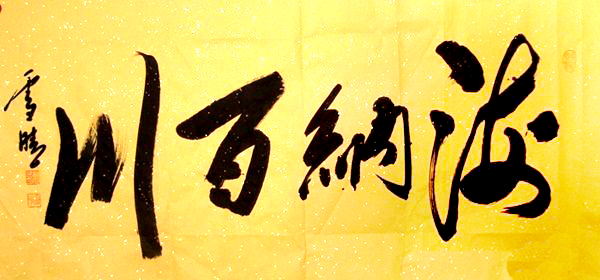 海納百川
雪晴